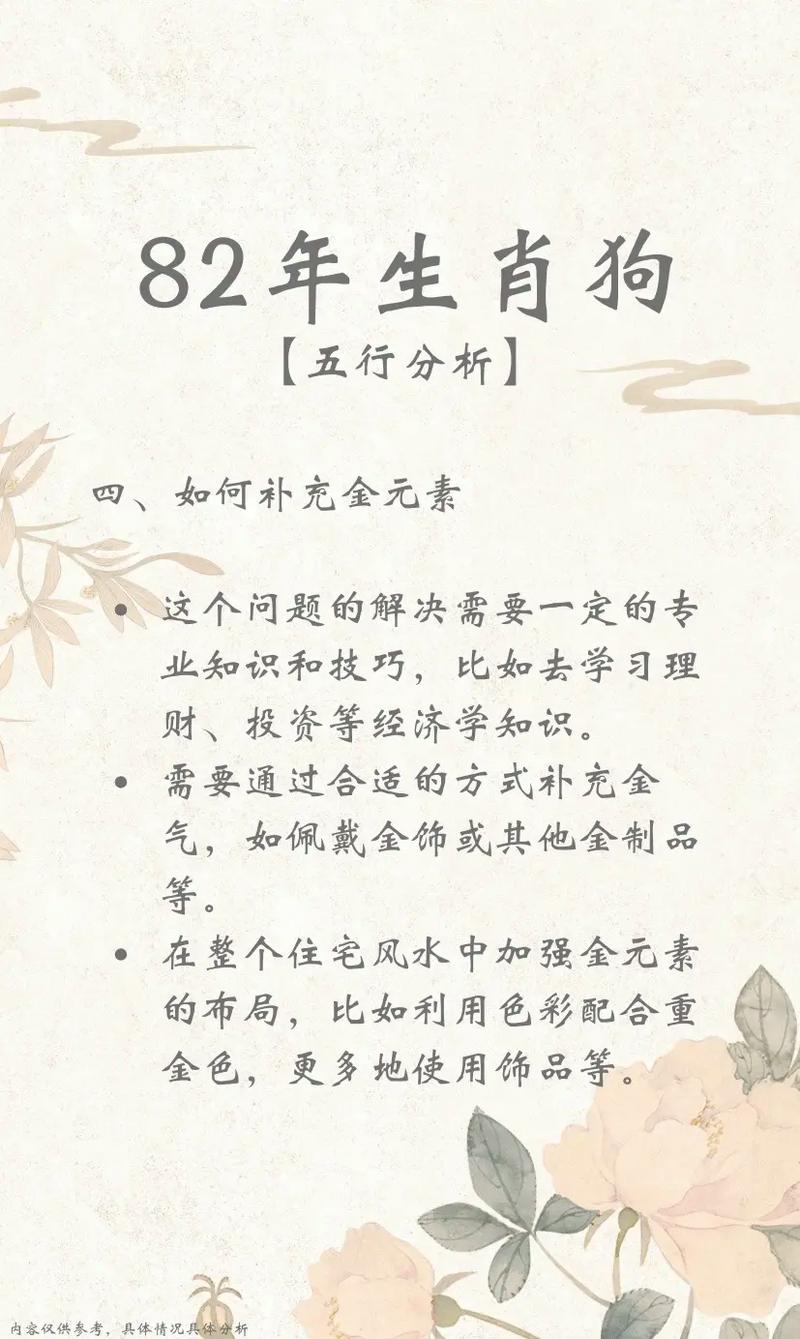 82年生肖狗
【五行分析】
四、如何补充金元素
• 这个问题的解决需要一定的专
业知识和技巧，比如去学习理
财、投资等经济学知识。
• 需要通过合适的方式补充金
气，如佩戴金饰或其他金制品
等。
• 在整个住宅风水中加强金元素
的布局，比如利用色彩配合重
金色，更多地使用饰品等。
内容仅供参考，具体情况具体分析